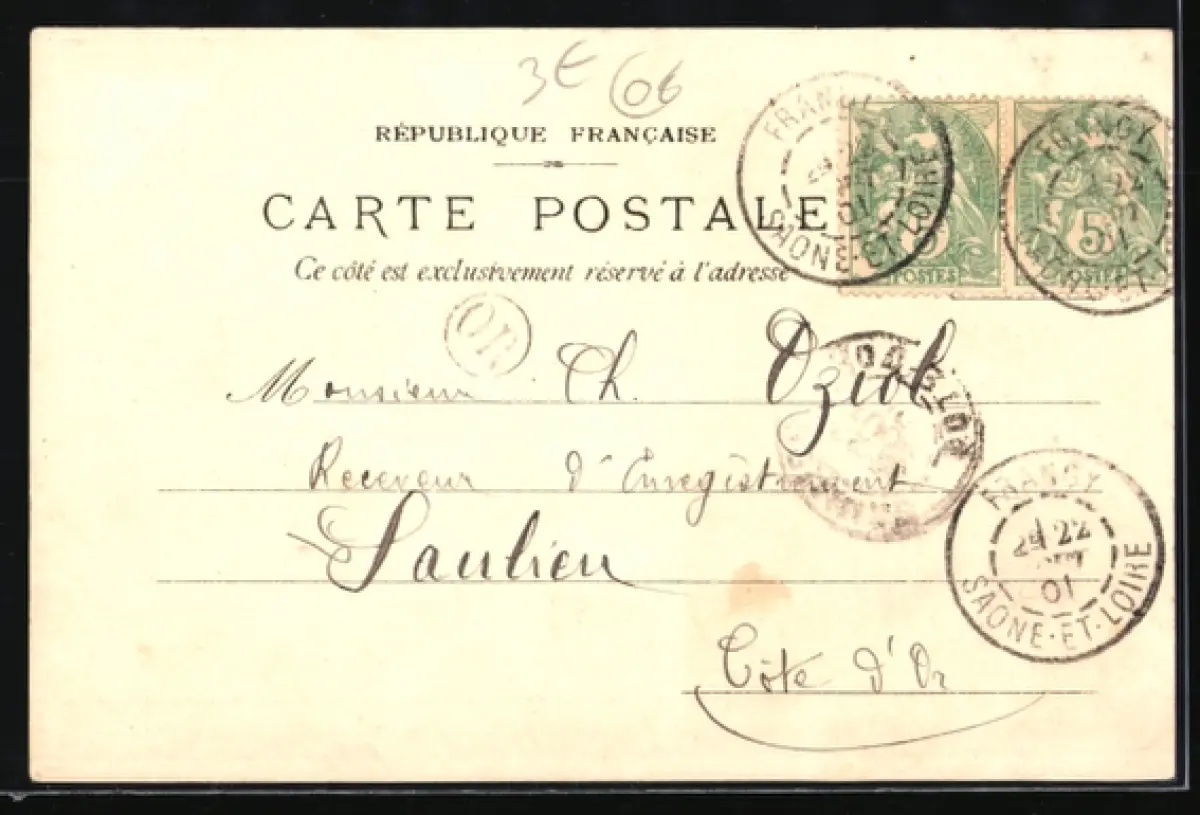 3€ 06
RÉPUBLIQUE FRANÇAISE
CARTE POSTALE
Ce côté est exclusivement réservé à l'adresse
FRANGY
01
SAONE-ET-LOIRE
5
POSTES
FRANGY
22
01
5
POSTES
OR
Monsieur Ch. Oziol
Receveur d'Enregistrement
Saulieu
Côte d'Or
FRANGY
22
01
SAONE-ET-LOIRE